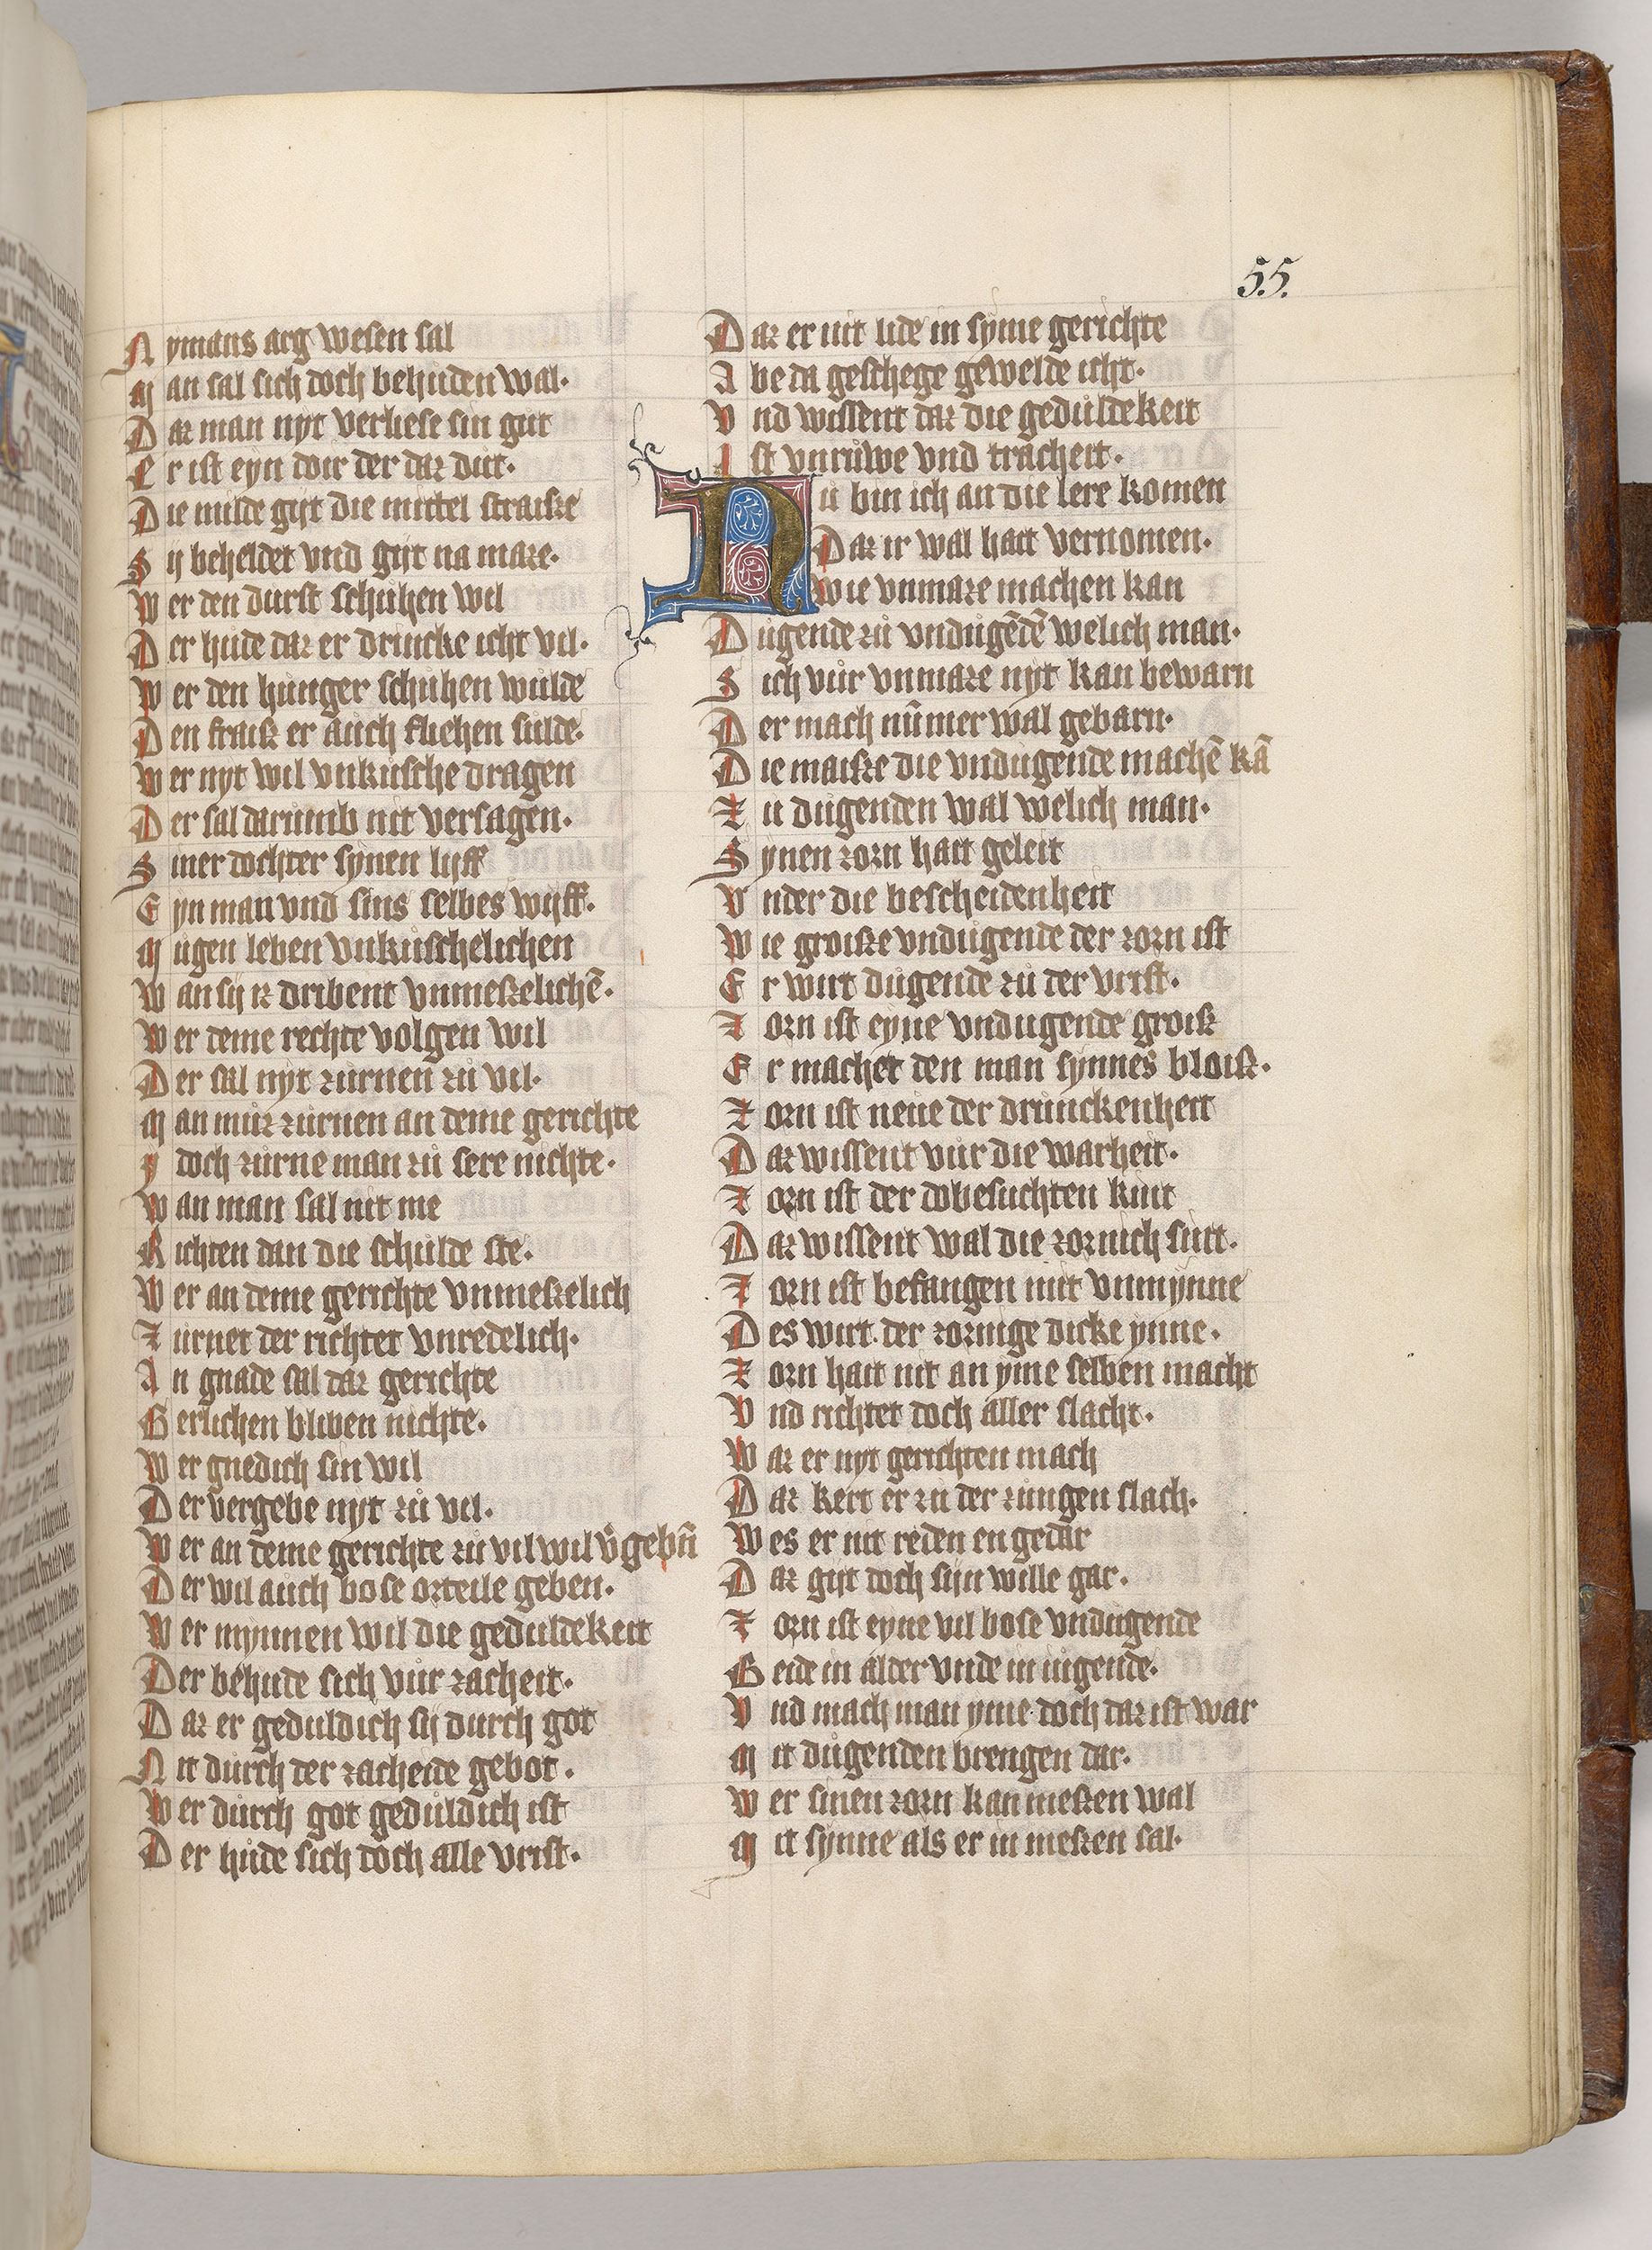 55.
N ymans arg wesen sal
M an sal sich doch behuden wal·
D az man nyt verliese sin gut
E r ist eyn doir der daz dut·
D ie milde gijt die mittel straisze
S ij beheldet vnd gijt na maze·
W er den durst schuhen wil
D er hude daz er drincke icht vil·
W er den hunger schuhen wulde
D en fraisz er auch fliehen sulde·
W er nyt wil vnkusche dragen
D er sal darumb nit versagen·
S iner dochter synen lijff
E yn man vnd sins selbes wijff·
M ůgen leben vnkuschelichen
W an sij iz dribent vnmeszelichē·
W er deme rechte volgen wil
D er sal nyt zurnen zů vil·
M an můz zurnen an deme gerichte
Y doch zurne man zů sere nichte·
W an man sal nit me
R ichten dan die schulde ste·
W er an deme gerichte vnmeszelich
Z urnet der richtet vnredelich·
A n gnade sal daz gerichte
G erlichen bliben nichte·
W er gnedich sin wil
D er vergebe nyt zů vil·
W er an deme gerichte zů vil wil v̓gebn̄
D er wil auch bose orteile geben·
W er mynnen wil die geduldekeit
D er behude sich vur zacheit·
D az er geduldich sij durch got
N it durch der zacheide gebot·
W er durch got geduldich ist
D er hůde sich doch alle vrist·
D az er nit lide in syme gerichte
A be da geschege gewelde icht·
V nd wissent daz die geduldekeit
I st vnrůwe vnd tracheit·
N u bin ich an die lere komen
D az ir wal hait vernomen·
Wie vnmaze machen kan
D ugende zů vndugēdē welich man·
S ich vur vnmaze nyt kan bewarn
D er mach nūmer wal gebarn·
D ie maisze die vndugende machē kā
Z u dugenden wal welich man·
S ynen zorn hait geleit
V nder die bescheidenheit
W ie groisze vndugende der zorn ist
E r wirt dugende zů der vrist·
Z orn ist eyne vndugende groisz
E r machet den man synnes bloisz·
Z orn ist neue der drunckenheit
D az wissent vur die warheit·
Z orn ist der dobesuchten kint
D az wissent wal die zornich sint·
Z orn ist befangen mit vnmynne
D es wirt der zornige dicke ynne·
Z orn hait nit an yme selben macht
V nd richtet doch aller slacht·
W az er nyt gerichten mach
D az kert er zu der zungen slach·
W es er nit reden en gedar
D az gijt doch sijn wille gar·
Z orn ist eyne vil bose vndugende
B eide in alder vnde in iugende·
V nd mach man yme doch daz ist war
M it dugenden brengen dar·
W er sinen zorn kan meszen wal
M it synne als er in meszen sal·